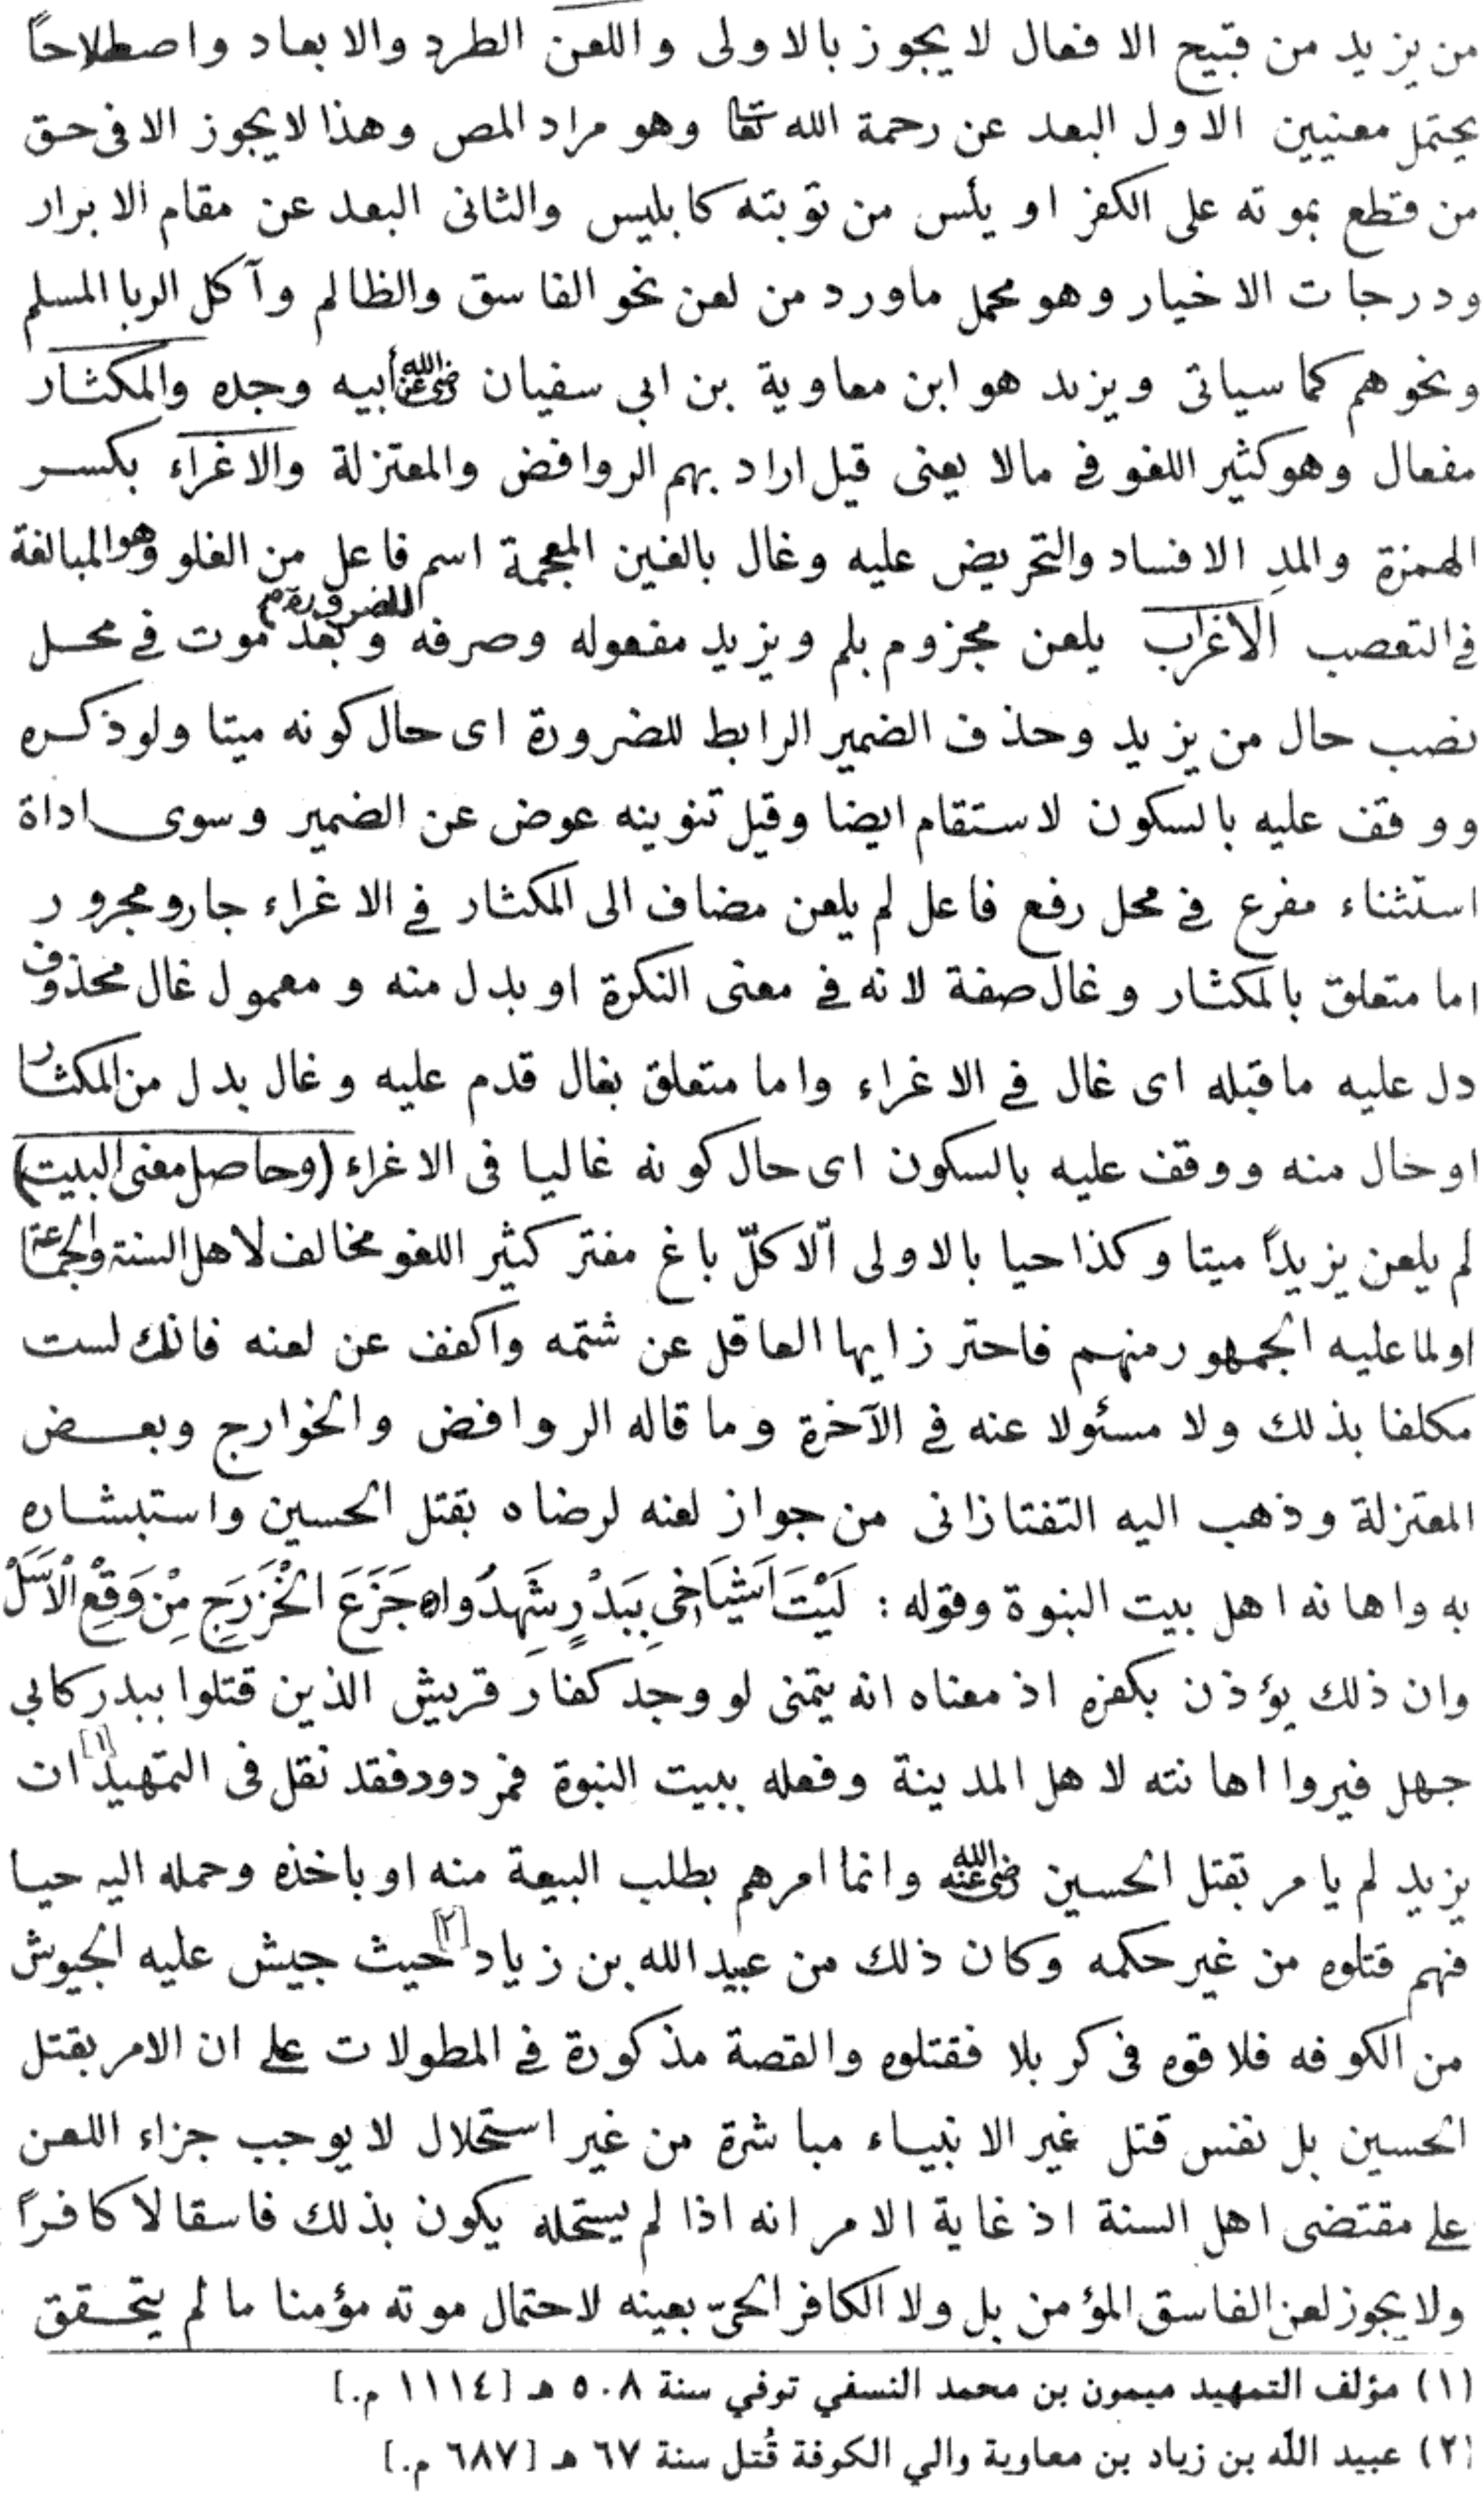 من يزيد من قبيح الافعال لا يجوز بالاولى واللعن الطرد والابعاد واصطلاحاً
يحتمل معنيين الاول البعد عن رحمة الله تعا وهو مراد المص وهذا لا يجوز الا فى حق
من قطع بموته على الكفر او يأس من توبته كابليس والثانى البعد عن مقام الابرار
ودرجات الاخيار وهو محمل ماورد من لعن نحو الفاسق والظالم وآكل الربا المسلم
ونحوهم كما سياتى ويزيد هو ابن معاوية بن ابي سفيان رضي الله عن أبيه وجده والمكثار
مفعال وهو كثير اللغو في مالا يعنى قيل اراد بهم الروافض والمعتزلة والاغراء بكسر
الهمزة والمدِ الافساد والتحريض عليه وغال بالغين المعجمة اسم فاعل من الغلو وهو المبالغة
في التعصب الاغراب يلعن مجزوم بلم ويزيد مفعوله وصرفه للضرورة وبعد موت في محل
نصب حال من يزيد وحذف الضمير الرابط للضرورة اى حال كونه ميتا ولو ذكره
ووقف عليه بالسكون لاستقام ايضا وقيل تنوينه عوض عن الضمير وسوى اداة
استثناء مفرع في محل رفع فاعل لم يلعن مضاف الى المكثار في الاغراء جار ومجرور
اما متعلق بالمكثار وغال صفة لانه في معنى النكرة او بدل منه و معمول غال محذوف
دل عليه ماقبله اى غال في الاغراء واما متعلق بغال قدم عليه وغال بدل من المكثار
اوحال منه ووقف عليه بالسكون اى حال كونه غاليا فى الاغراء (وحاصل معنى البيت)
لم يلعن يزيداً ميتا وكذا حيا بالاولى الّا كلّ باغ مفتر كثير اللغو مخالف لاهل السنة والجماعة
اولما عليه الجمهور منهم فاحترز ايها العاقل عن شتمه واكفف عن لعنه فانك لست
مكلفا بذلك ولا مسئولا عنه في الآخرة وما قاله الروافض والخوارج وبعض
المعتزلة وذهب اليه التفتازانى من جواز لعنه لرضاه بقتل الحسين واستبشارِهِ
به واهانه اهل بيت النبوة وقوله : لَيْتَ اَشْيَاخِى بِبَدْرٍ شَهِدُوا ه جَزَعَ الْخَزْرَجِ مِنْ وَقْعِ الْاَسَلْ
وان ذلك يؤذن بكفره اذ معناه انه يتمنى لو وجد كفار قريش الذين قتلوا ببدر كابي
جهل فيروا اهانته لاهل المدينة وفعله ببيت النبوة فمردود فقد نقل فى التمهيد[١] ان
يزيد لم يامر بقتل الحسين رضي الله عنه وانما امرهم بطلب البيعة منه او باخذه وحمله اليه حيا
فهم قتلوه من غير حكمه وكان ذلك من عبيد الله بن زياد[٢] حيث جيش عليه الجيوش
من الكوفه فلاقوه فى كربلا فقتلوه والقصة مذكورة في المطولات على ان الامر بقتل
الحسين بل نفس قتل غير الانبياء مباشرة من غير استحلال لا يوجب جزاء اللعن
على مقتضى اهل السنة اذ غاية الامر انه اذا لم يستحله يكون بذلك فاسقا لا كافراً
ولا يجوز لعن الفاسق المؤمن بل ولا الكافر الحىّ بعينه لاحتمال موته مؤمنا ما لم يتحقق
(١) مؤلف التمهيد ميمون بن محمد النسفي توفي سنة ٥٠٨ هـ [١١١٤ م.]
(٢) عبيد الله بن زياد بن معاوية والي الكوفة قُتل سنة ٦٧ هـ [٦٨٧ م.]